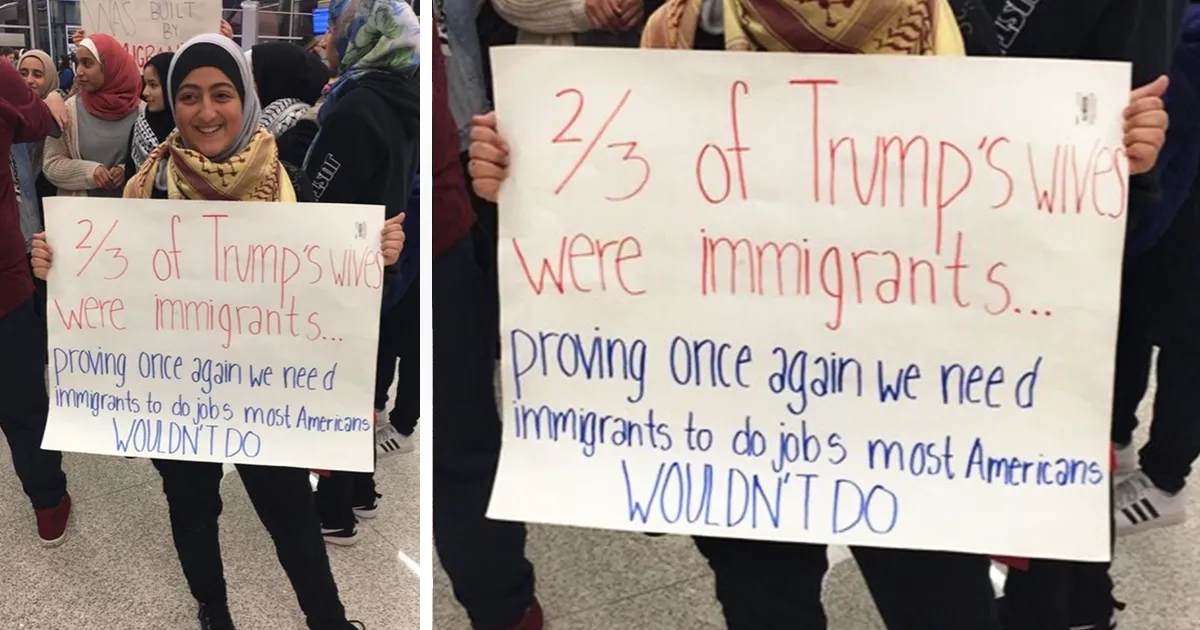 WAS BUILT
BY
IMMIGRANTS
2/3 of Trump's wives
were immigrants...
proving once again we need
immigrants to do jobs most Americans
WOULDN'T DO
2/3 of Trump's wives
were immigrants...
proving once again we need
immigrants to do jobs most Americans
WOULDN'T DO